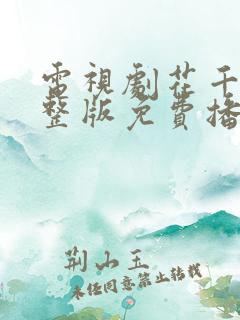 電視劇花千
整版免費播
荆山玉
未任同意禁止转载